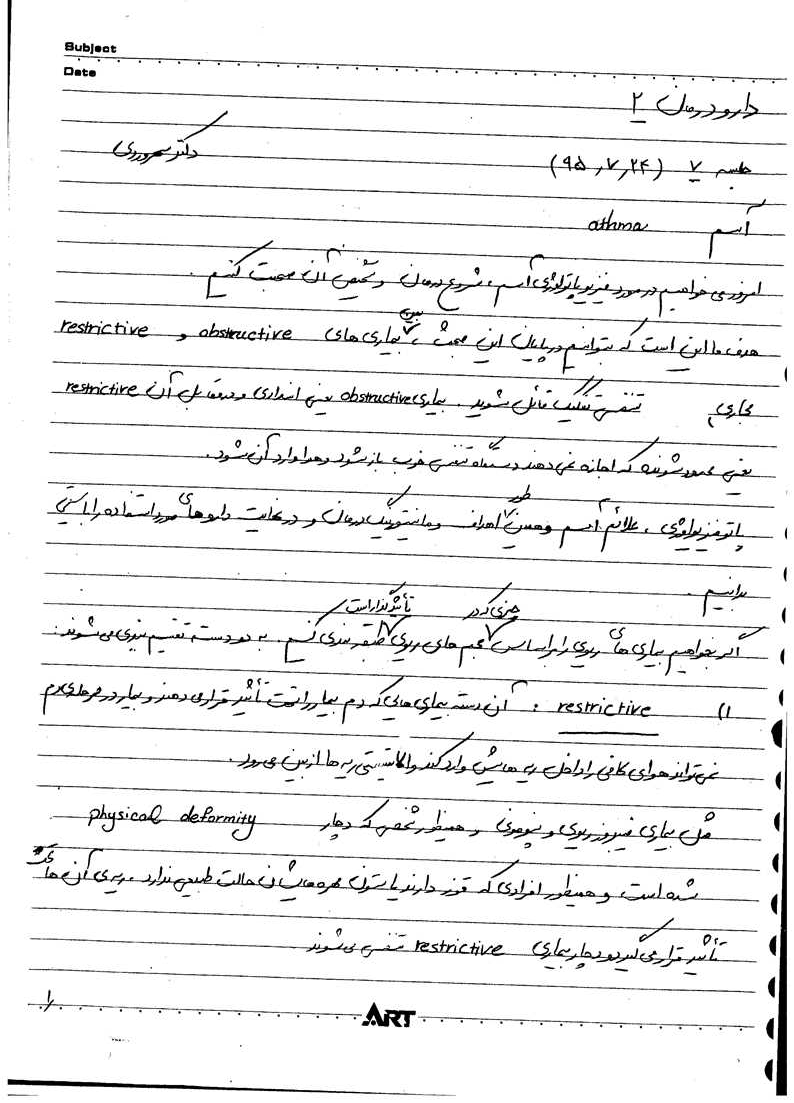 Subject
Date
دارو درمان ۲
جلسه ۷ (۹۵,۷,۲۴) دکتر سهروردی
آسم athma
امروز می خواهیم در مورد فیزیوپاتولوژی آسم، شروع درمان و تشخیص آن صحبت کنیم.
هدف ما این است که بتوانیم در پایان این مبحث، بین بیماری های obstructive و restrictive
مجاری تنفسی تفکیک قائل شوید. بیماری obstructive یعنی انسدادی و در مقابل آن restrictive
یعنی محدود شونده که اجازه نمی دهند دستگاه تنفسی خوب باز شود و هوا وارد آن شود.
پاتوفیزیولوژی، علائم آسم و همین طور اهداف و مانیتورینگ درمان و در نهایت داروهای مورد استفاده را بایستی
بدانیم.
اگر بخواهیم بیماری های ریوی را بر اساس چیزی که در حجم های ریوی تأثیرگذار است طبقه بندی کنیم. به دو دسته تقسیم بندی می شوند:
۱) restrictive : آن دسته بیماری هایی که دم بیمار را تحت تأثیر قرار می دهند و بیمار در مرحله ی دم
نمی تواند هوای کافی را داخل ریه هایش وارد کند و الاستیسیتی ریه ها از بین می رود.
مثل بیماری فیبروز ریوی و پنومونی و همینطور شخصی که دچار physical deformity
شده است و همینطور افرادی که قوز دارند یا ستون مهره هایشان حالت طبیعی ندارد، ریه ی آن ها تحت
تأثیر قرار می گیرد و دچار بیماری restrictive تنفسی می شوند.
۱
ART